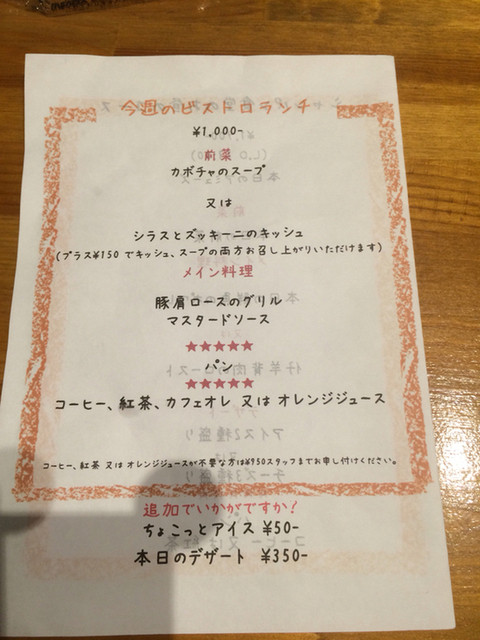 今週のビストロランチ
¥1,000-
前菜
カボチャのスープ
又は
シラスとズッキーニのキッシュ
(プラス¥150 でキッシュ、スープの両方お召し上がりいただけます)
メイン料理
豚肩ロースのグリル
マスタードソース
★★★★★
パン
★★★★★
コーヒー、紅茶、カフェオレ 又は オレンジジュース
コーヒー、紅茶 又は オレンジジュースが不要な方は¥950スタッフまでお申し付けください。
追加でいかがですか！
ちょこっとアイス ¥50-
本日のデザート ¥350-